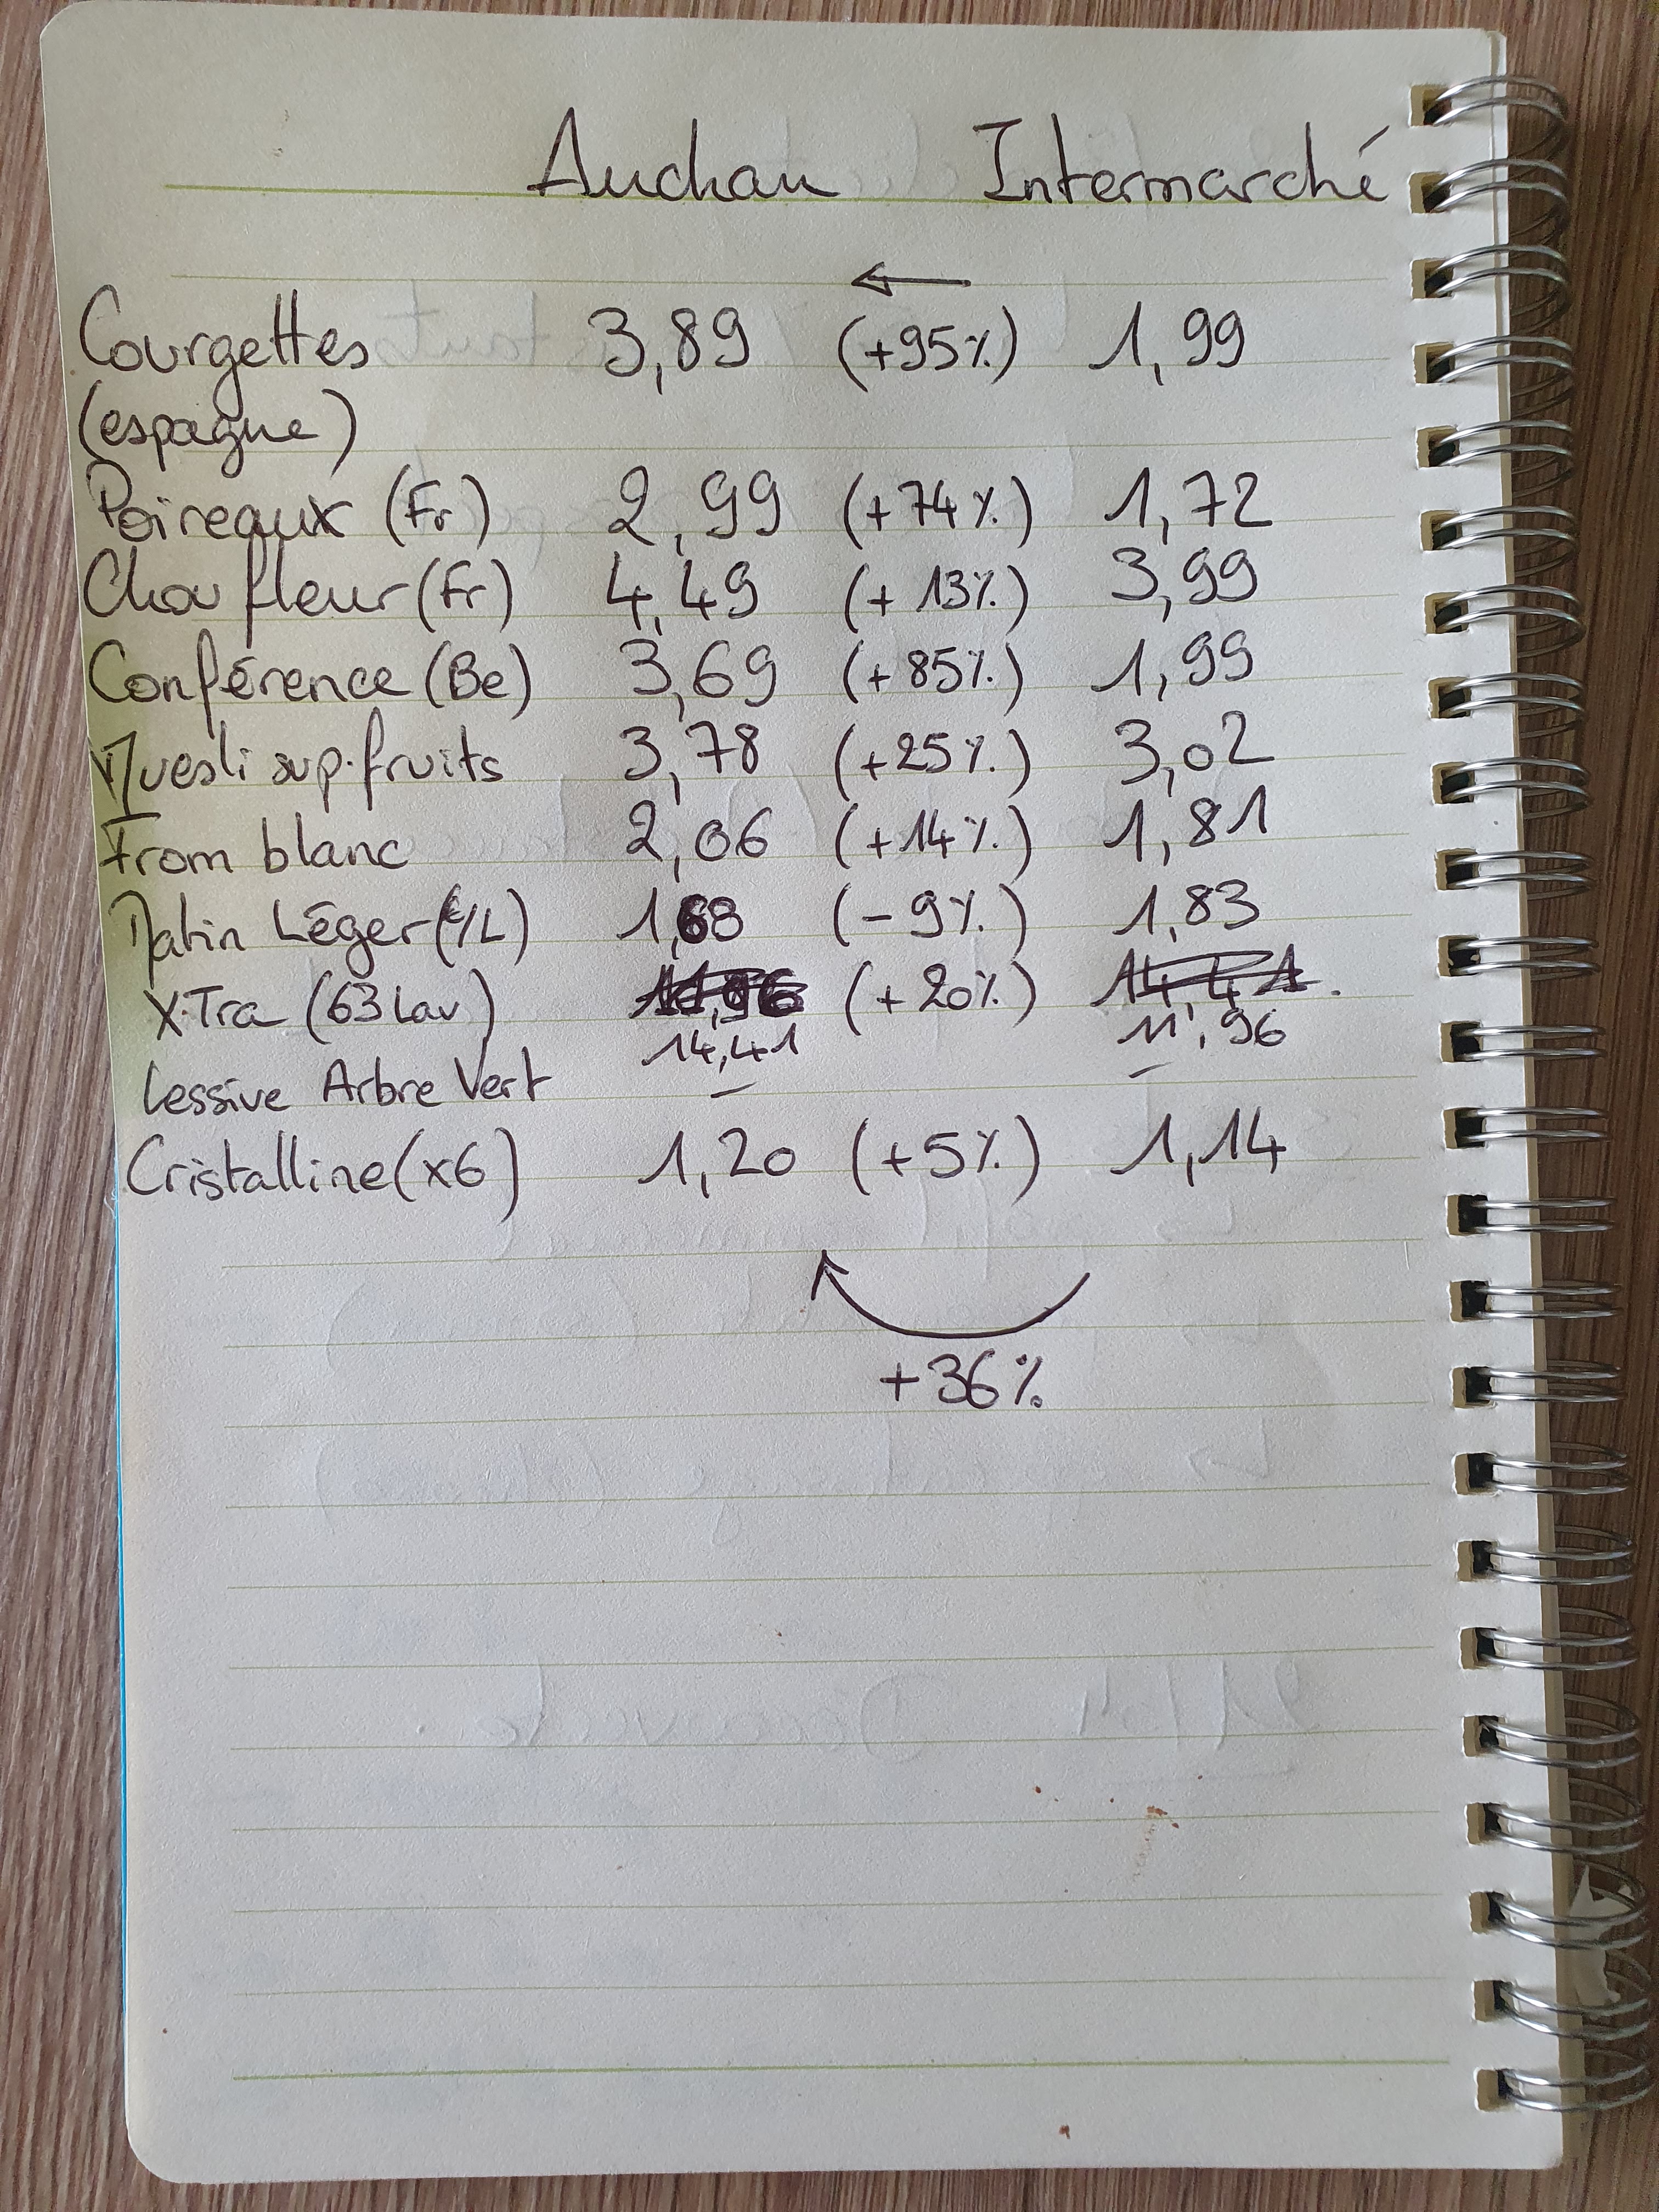 Auchan Intermarché
←
Courgettes 3,89 (+95%) 1,99
(espagne)
Poireaux (Fr) 2,99 (+74%) 1,72
Chou fleur (Fr) 4,49 (+13%) 3,99
Conférence (Be) 3,69 (+85%) 1,99
Muesli sup. fruits 3,78 (+25%) 3,02
From blanc 2,06 (+14%) 1,81
Matin Léger (€/L) 1,68 (-9%) 1,83
X-Tra (63 Lav) 11,96 (+20%) 14,41
14,41 11,96
Lessive Arbre Vert – –
Cristalline (x6) 1,20 (+5%) 1,14
+36%